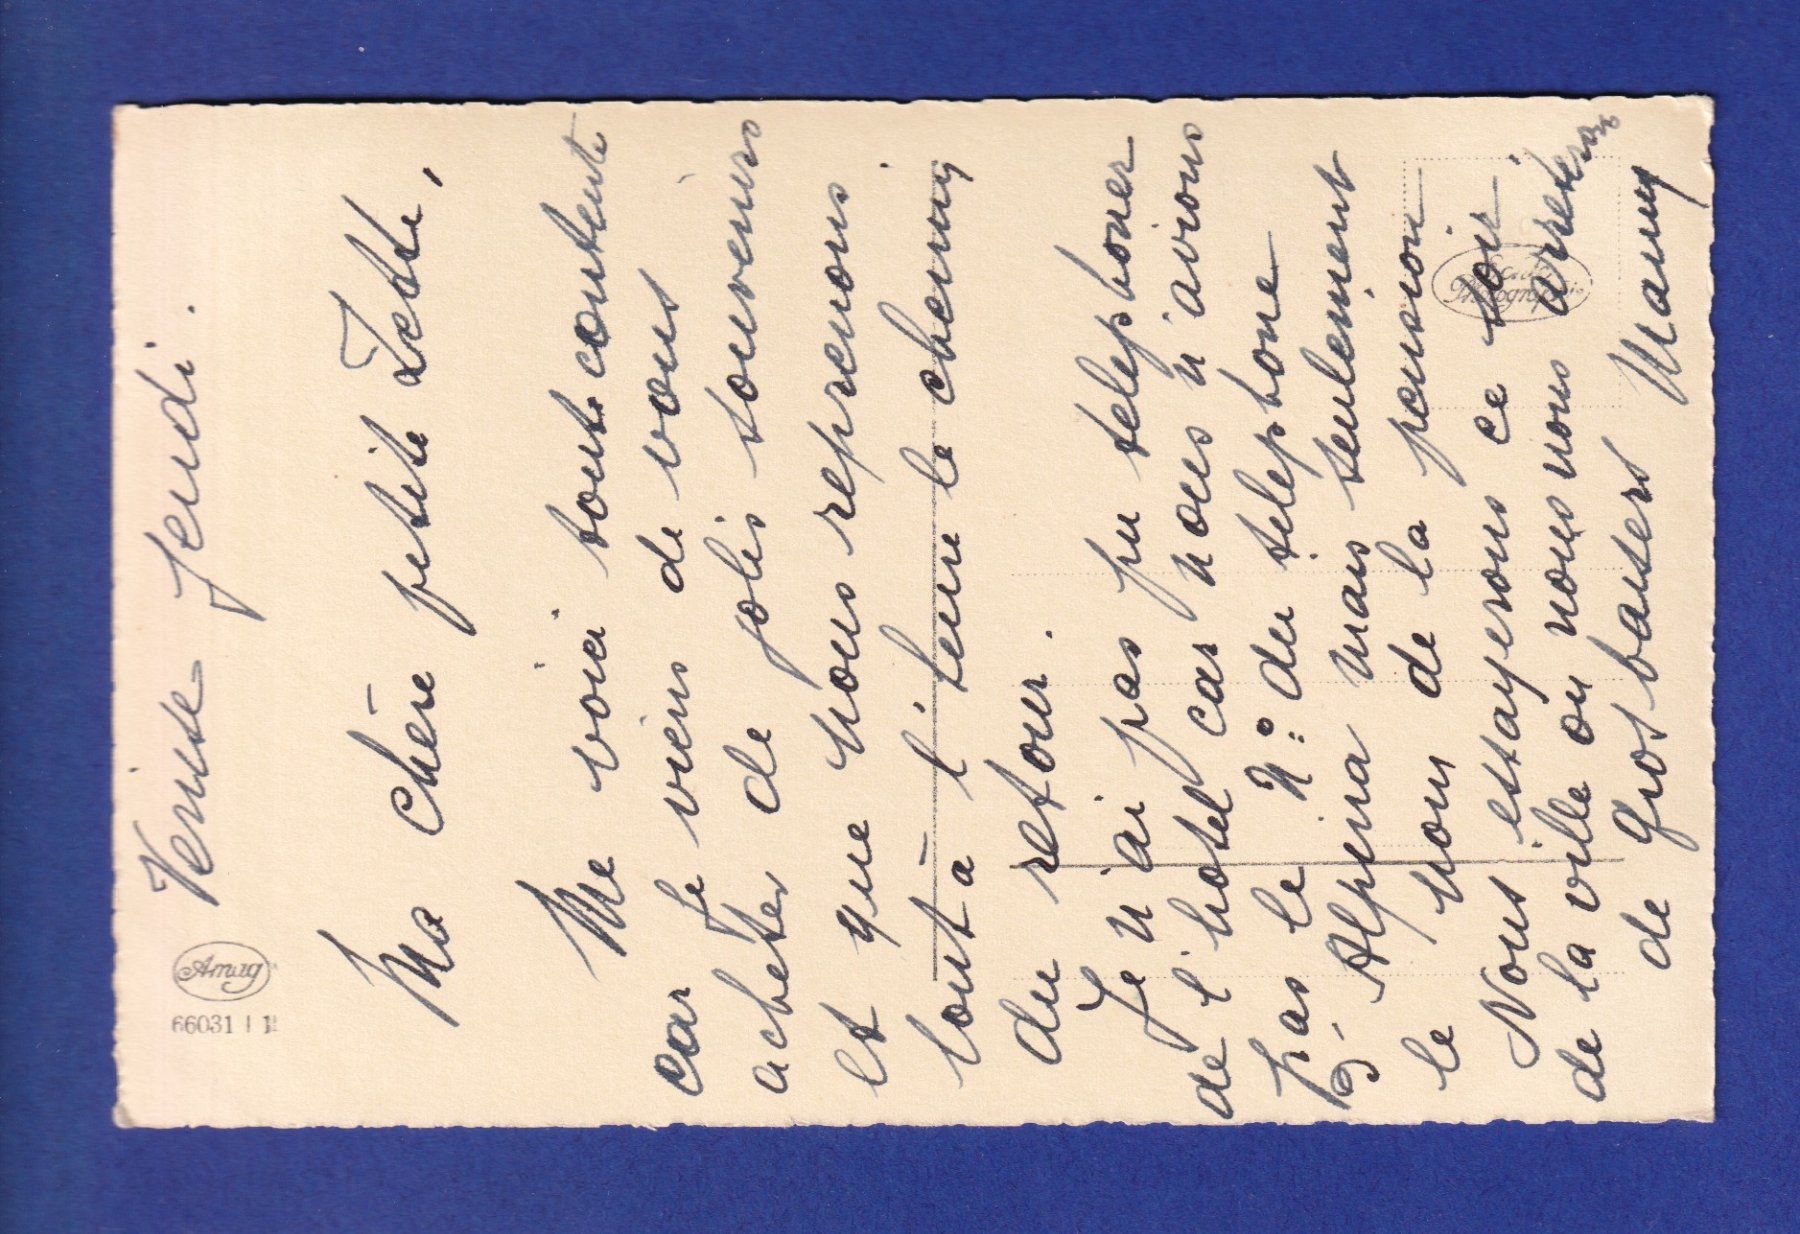 Venise jeudi.
Ma chère petite Zette,
Me voici tout contente
car je viens de vous
acheter de jolis souvenirs
et que nous reprenons
tout à l'heure le chemin
du retour.
Je n'ai pas pu telephoner
de l'hotel car nous n'avions
pas le N° du telephone
Alpina mais seulement
le nom de la pension
Nous essayerons ce soir
de la ville ou nous nous arreterons
de gros baisers Mamy
Amag
66031
Photographie